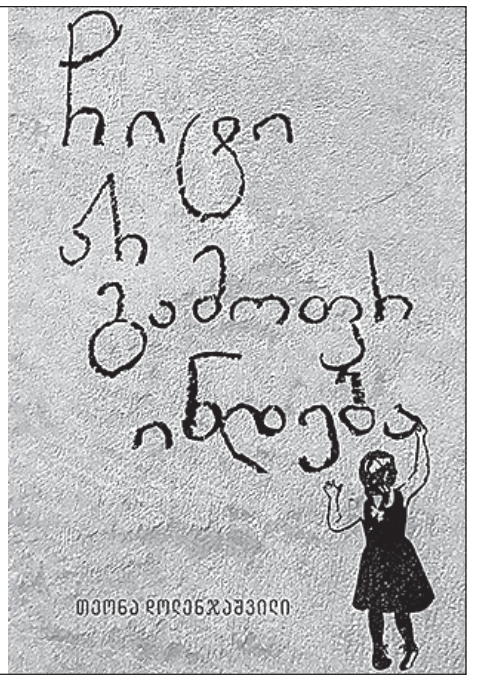 ჩიტი
არ
გამოფრ
ინდება
თეონა დოლენჯაშვილი